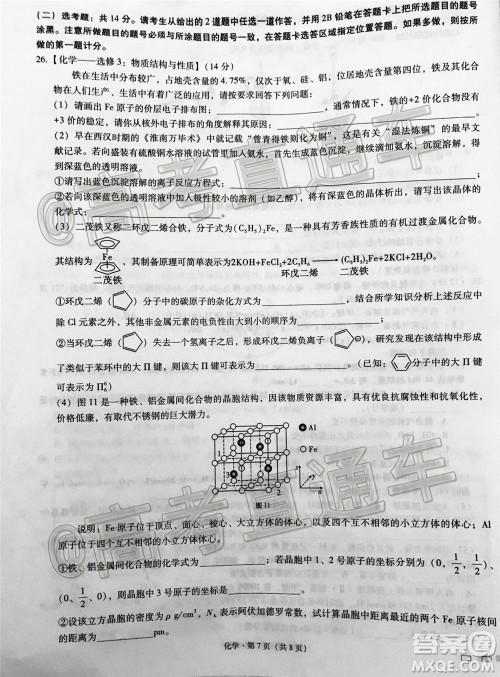 (二)选考题:共14分。请考生从给出的2道题中任选一道作答,并用2B铅笔在答题卡上把所选题目的题号
涂黑。注意所做题目的题号必须与所涂题目的题号一致,在答题卡选答区域指定位置答题。如果多做,则按所做
的第一题计分。
26.【化学——选修3:物质结构与性质】(14分)
铁在生活中分布较广,占地壳含量的4.75%,仅次于氧、硅、铝,居地壳含量第四位。铁及其化合
物在人们生产、生活中用途广泛,请按要求回答下列问题:
(1)请画出Fe原子的价层电子排布图:
请从核外电子排布角度解释,为什么铁的+2价化合物没有
+3价的稳定,
(2)早在西汉时期的《淮南万毕术》中就记载有“曾青得铁则化为铜”,这是有关“湿法炼铜”的最早文
献记录。若向盛有硫酸铜水溶液的试管里加入氨水,首先形成蓝色沉淀,继续滴加氨水,沉淀溶解,得到
深蓝色的透明溶液。
①请写出得到深蓝色溶液的离子反应方程式:
②若向该深蓝色的透明溶液中加入极性较小的溶剂(如乙醇),将有深蓝色的晶体析出,请写出该晶体的
化学式:
(3)二茂铁又称二环戊二烯合铁,分子式为(C₅H₅)₂Fe,是一种具有芳香族性质的有机过渡金属化合物。
Fe
二茂铁
其结构为
,其制备原理可简单表示为2KOH+FeCl₂+2C₅H₆→(C₅H₅)₂Fe+2KCl+2H₂O。
环戊二烯
二茂铁
①环戊二烯( )分子中的碳原子的杂化方式为
除Cl元素之外,其他非金属元素的电负性由大到小的顺序为
②环戊二烯( )失去一个氢离子后,生成环戊二烯负离子( ),研究发现了
了类似于苯环中的大Π键的结构,则该大Π键可表示为
。(已知:苯( )中的大
Π键可表示为Π₆⁶)
(4)图11是一种铁、铝金属间化合物的晶胞结构,因其物质资源丰富,具有优良抗腐蚀性和抗氧化性,
价格低廉,有取代不锈钢的巨大潜力。
Al
Fe
1
2
3
图11
说明:Fe原子位于顶点、面心、棱心、大立方体的体心、以及四个互不相邻的小立方体的体心;Al
原子位于四个互不相邻的小立方体的体心。
①铁、铝金属间化合物的化学式为
;若晶胞中1、2号原子的坐标分别为(0,1/2,1/2)、
(0,0,1/2),则晶胞中3号原子的坐标为
②设该立方晶胞的密度为ρ g/cm³,Nₐ表示阿伏加德罗常数,试计算晶胞中距离最近的两个Fe原子核间
的距离为
化学·第7页(共8页)
高考直通车
答案圈
MXQE.COM